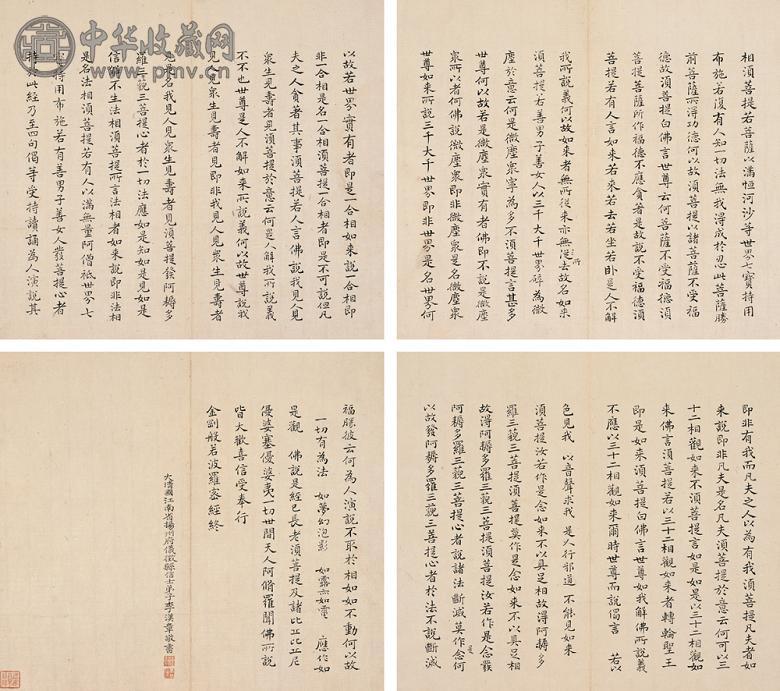 中华收藏网
www.pmv.cn
相須菩提若菩薩以滿恒河沙等世界七寶持用
布施若復有人知一切法無我得成於忍此菩薩勝
前菩薩所得功德何以故須菩提以諸菩薩不受福
德故須菩提白佛言世尊云何菩薩不受福德須
菩提菩薩所作福德不應貪著是故說不受福德須
菩提若有人言如來若來若去若坐若卧是人不解
我所說義何以故如來者無所從來亦無所去故名如來
須菩提若善男子善女人以三千大千世界碎為微
塵於意云何是微塵衆寧為多不須菩提言甚多
世尊何以故若是微塵衆實有者佛即不說是微塵
衆所以者何佛說微塵衆即非微塵衆是名微塵衆
世尊如來所說三千大千世界即非世界是名世界何
以故若世界實有者即是一合相如來說一合相即
非一合相是名一合相須菩提一合相者即是不可說但凡
夫之人貪著其事須菩提若人言佛說我見人見
衆生見壽者見須菩提於意云何是人解我所說義
不不也世尊是人不解如來所說義何以故世尊說我
見人見衆生見壽者見即非我見人見衆生見壽者
見是名我見人見衆生見壽者見須菩提發阿耨多
羅三藐三菩提心者於一切法應如是知如是見如是
信解不生法相須菩提所言法相者如來說即非法相
是名法相須菩提若有人以滿無量阿僧祇世界七
寶持用布施若有善男子善女人發菩提心者
持於此經乃至四句偈等受持讀誦為人演說其
即非有我而凡夫之人以為有我須菩提凡夫者如
來說即非凡夫是名凡夫須菩提於意云何可以三
十二相觀如來不須菩提言如是如是以三十二相觀如
來佛言須菩提若以三十二相觀如來者轉輪聖王
即是如來須菩提白佛言世尊如我解佛所說義
不應以三十二相觀如來爾時世尊而說偈言 若以
色見我 以音聲求我 是人行邪道 不能見如來
須菩提汝若作是念如來不以具足相故得阿耨多
羅三藐三菩提須菩提莫作是念如來不以具足相
故得阿耨多羅三藐三菩提須菩提汝若作是念發
阿耨多羅三藐三菩提心者說諸法斷滅莫作是念何
以故發阿耨多羅三藐三菩提心者於法不說斷滅
福勝彼云何為人演說不取於相如如不動何以故
一切有為法 如夢幻泡影 如露亦如電 應作如
是觀 佛說是經已長老須菩提及諸比丘比丘尼
優婆塞優婆夷一切世間天人阿脩羅聞佛所說
皆大歡喜信受奉行
金剛般若波羅密經終
大清國江南省揚州府儀徵縣信士弟子李漢章敬書